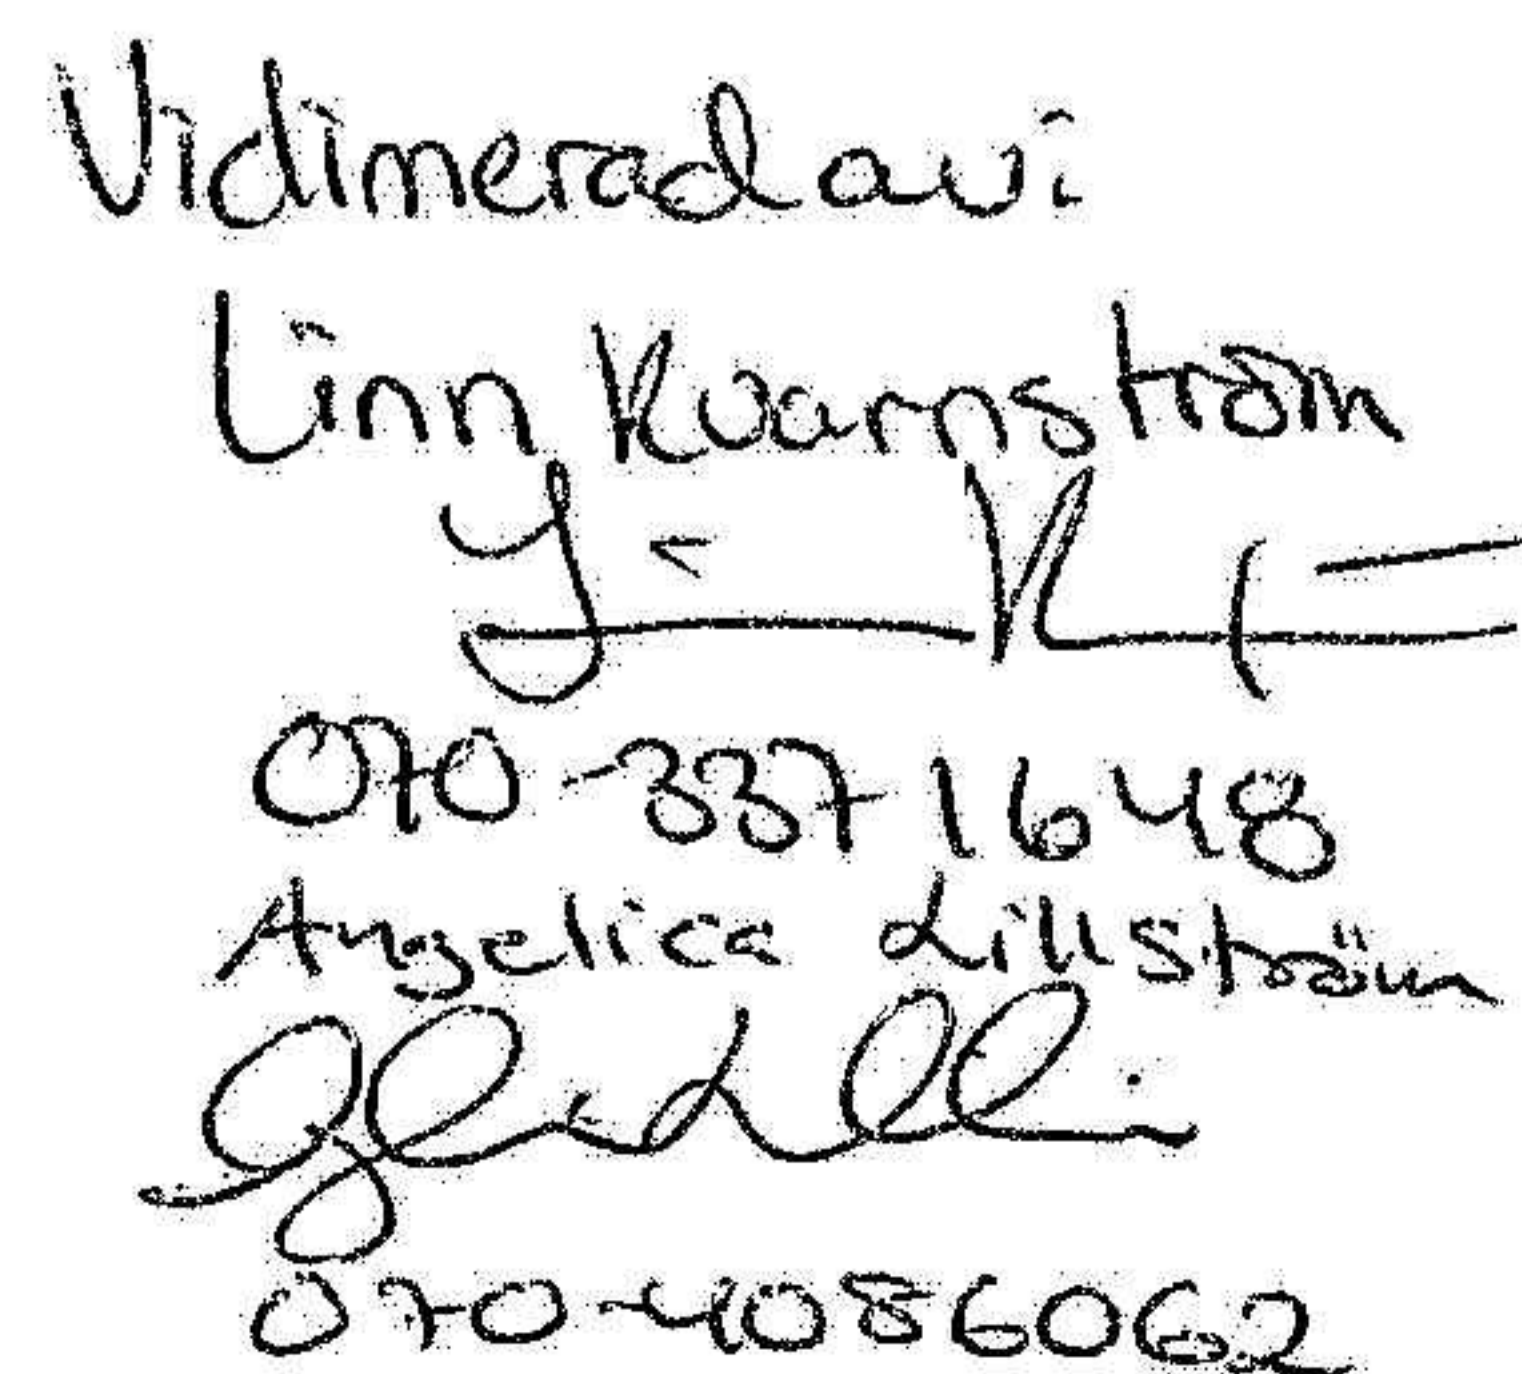 Vidimerad av:
Linn Kvarnström
070-3371648
Angelica Lillström
070-4086062